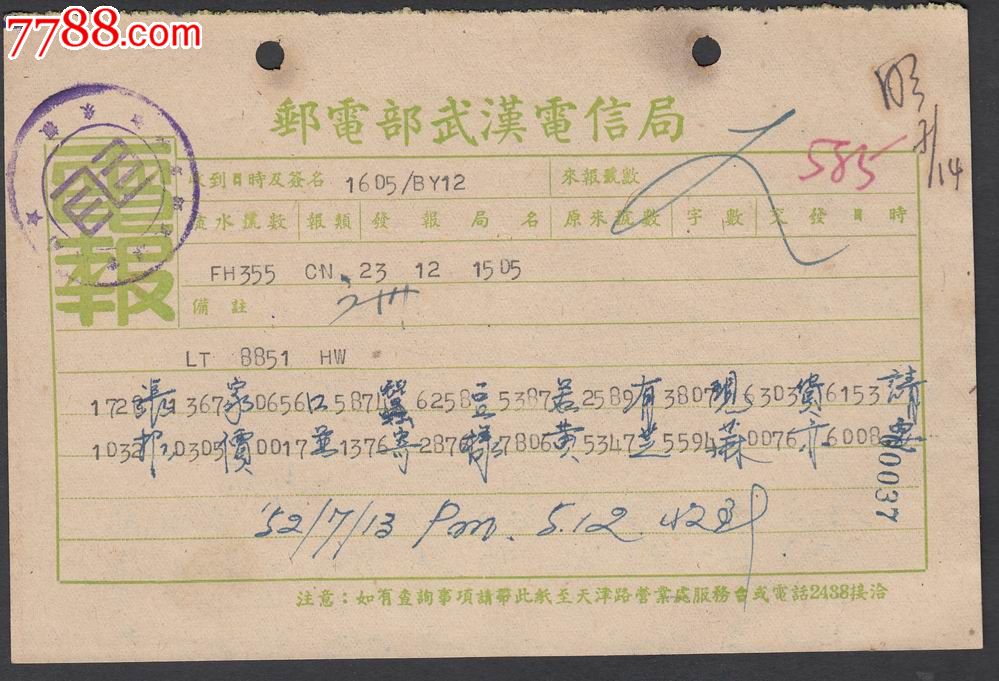 7788.com
邮電部武漢電信局
電報
收到日時及簽名 1605/BY12 來報號數 585
流水號數 報類 發報局名 原來號數 字數 交發日時
FH355 CN 23 12 1505
備註
LT 8851 HW
1728張 1367家 0656口 5871蠶 6258豆 5387若 2589有 3807現 6303貨 6153請
1032 0305價 0017並 1376寄 2876樣 7806黃 5347芝 5594蔴 0076亦 6008
00037
'52/7/13 Pm. 5.12
注意：如有查詢事項請帶此紙至天津路營業處服務台或電話2438接洽
7/14